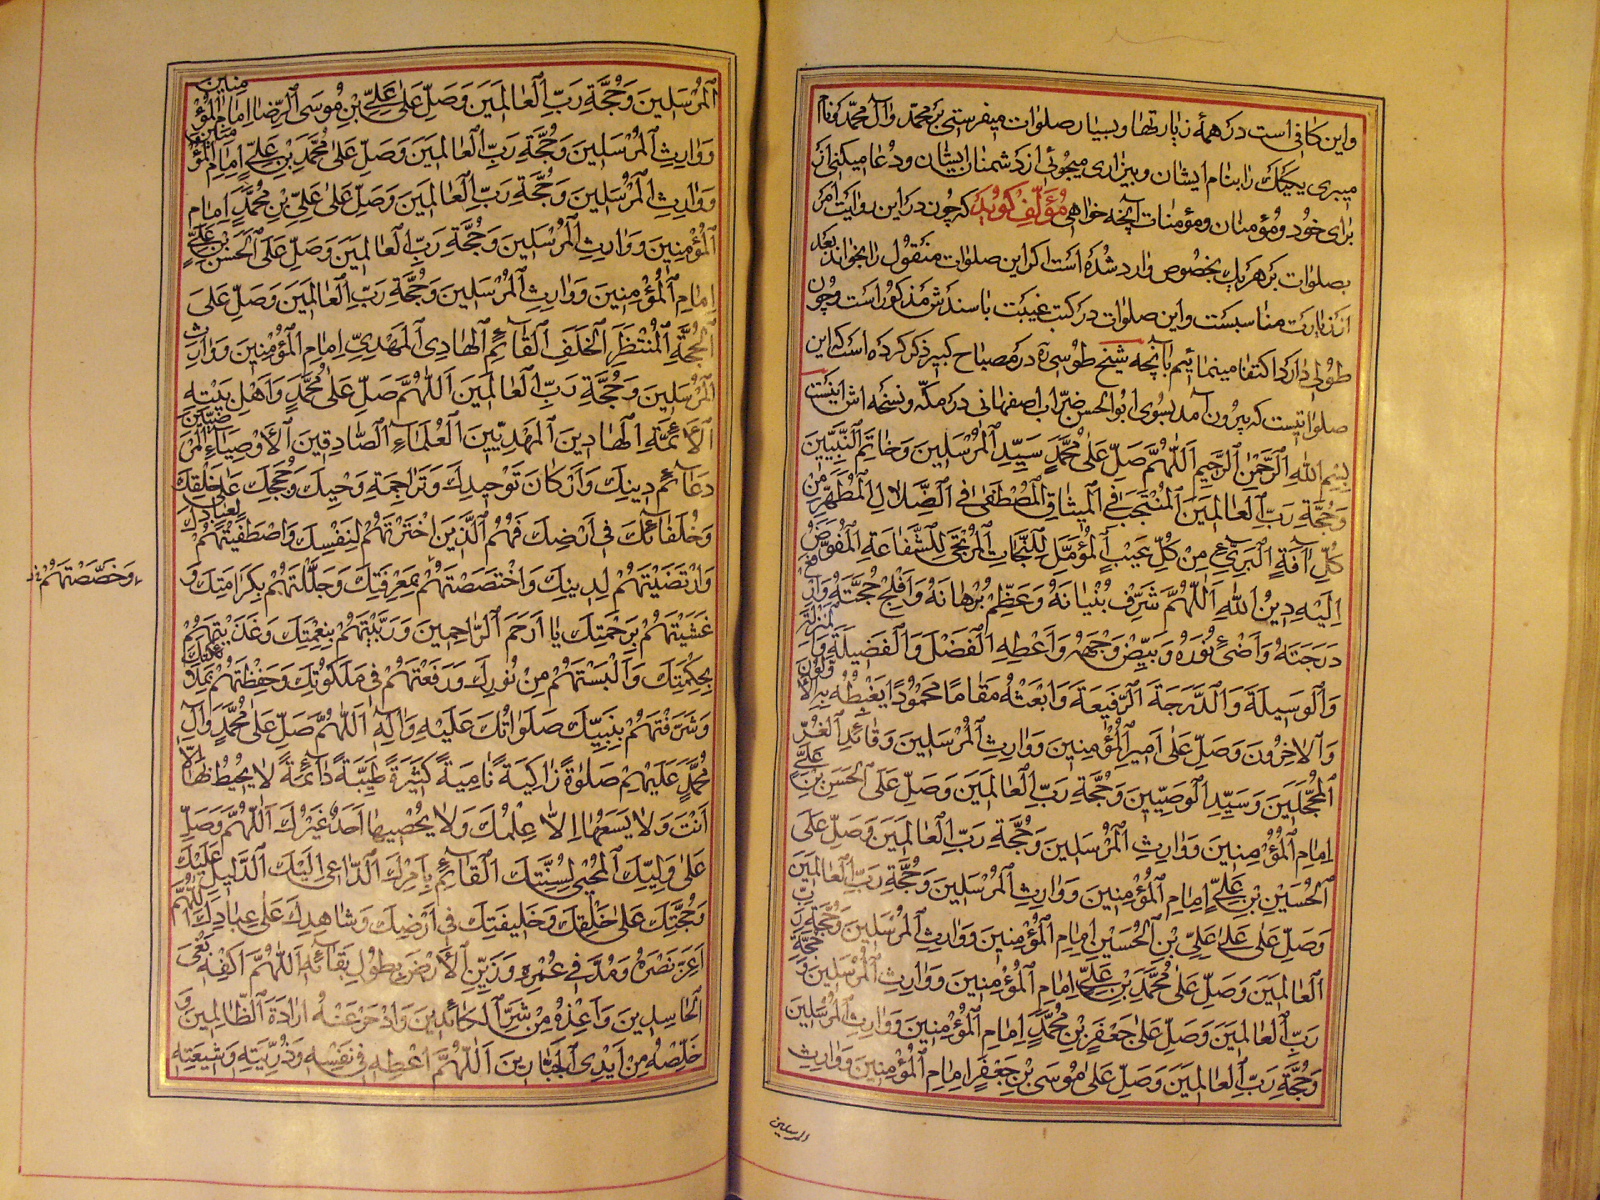 واین کافی است در همهٔ زیارتها و بسیار صلوات میفرستی بر محمد وآل محمد ونام
میبری یکیک را بنام ایشان و بیزاری میجوئی از دشمنان ایشان و دعا میکنی از
برای خود و مؤمنان ومؤمنات آنچه خواهی مؤلف گوید که چون در این روایت امر
بصلوات بر هر یک بخصوص وارد شده است اگر این صلوات منقول را بخواند بعد
از زیارت مناسبست واین صلوات در کتب غیبت با سندش مذکور است وچون
طولی دارد اکتفا مینمائیم بآنچه شیخ طوسی ره در مصباح کبیر ذکر کرده است که این
صلواتیست که بیرون آمد بسوی ابو الحسن ضرّاب اصفهانی در مکّه ونسخه اش اینست
بِسْمِ اللهِ الرَّحْمٰنِ الرَّحِيمِ اَللّٰهُمَّ صَلِّ عَلىٰ مُحَمَّدٍ سَيِّدِ الْمُرْسَلينَ وَخَاتَمِ النَّبِيّينَ
وَحُجَّةِ رَبِّ الْعَالَمينَ الْمُنْتَجَبِ فِي الْميثَاقِ الْمُصْطَفىٰ فِي الضِّلالِ الْمُطَهَّرِ مِنْ
كُلِّ اٰفَةٍ الْبَريءِ مِنْ كُلِّ عَيْبٍ الْمُؤَمَّلِ لِلنَّجَاتِ الْمُرْتَجىٰ لِلشَّفَاعَةِ الْمُفَوَّضِ
اِلَيْهِ دينُ اللهِ اَللّٰهُمَّ شَرِّفْ بُنْيَانَهُ وَعَظِّمْ بُرْهَانَهُ وَاَفْلِجْ حُجَّتَهُ وَارْفَعْ
دَرَجَتَهُ وَاَضِئْ نُورَهُ وَبَيِّضْ وَجْهَهُ وَاَعْطِهِ الْفَضْلَ وَالْفَضيلَةَ وَالْمَنْزِلَةَ
وَالْوَسيلَةَ وَالدَّرَجَةَ الرَّفيعَةَ وَابْعَثْهُ مَقَامًا مَحْمُودًا يَغْبِطُهُ بِهِ الْاَوَّلُونَ
وَالْاٰخِرُونَ وَصَلِّ عَلىٰ اَميرِ الْمُؤْمِنينَ وَوَارِثِ الْمُرْسَلينَ وَقَائِدِ الْغُرِّ
الْمُحَجَّلينَ وَسَيِّدِ الْوَصِيّينَ وَحُجَّةِ رَبِّ الْعَالَمينَ وَصَلِّ عَلَى الْحَسَنِ بْنِ عَلِيٍّ
اِمَامِ الْمُؤْمِنينَ وَوَارِثِ الْمُرْسَلينَ وَحُجَّةِ رَبِّ الْعَالَمينَ وَصَلِّ عَلَى
الْحُسَيْنِ بْنِ عَلِيٍّ اِمَامِ الْمُؤْمِنينَ وَوَارِثِ الْمُرْسَلينَ وَحُجَّةِ رَبِّ الْعَالَمينَ
وَصَلِّ عَلىٰ عَلِيِّ بْنِ الْحُسَيْنِ اِمَامِ الْمُؤْمِنينَ وَوَارِثِ الْمُرْسَلينَ وَحُجَّةِ رَبِّ
الْعَالَمينَ وَصَلِّ عَلىٰ مُحَمَّدِ بْنِ عَلِيٍّ اِمَامِ الْمُؤْمِنينَ وَوَارِثِ الْمُرْسَلينَ وَحُجَّةِ
رَبِّ الْعَالَمينَ وَصَلِّ عَلىٰ جَعْفَرِ بْنِ مُحَمَّدٍ اِمَامِ الْمُؤْمِنينَ وَوَارِثِ الْمُرْسَلينَ
وَحُجَّةِ رَبِّ الْعَالَمينَ وَصَلِّ عَلىٰ مُوسَى بْنِ جَعْفَرٍ اِمَامِ الْمُؤْمِنينَ وَوَارِثِ
المرسلین
الْمُرْسَلينَ وَحُجَّةِ رَبِّ الْعَالَمينَ وَصَلِّ عَلىٰ عَلِيِّ بْنِ مُوسَى الرِّضَا اِمَامِ الْمُؤْمِنينَ
وَوَارِثِ الْمُرْسَلينَ وَحُجَّةِ رَبِّ الْعَالَمينَ وَصَلِّ عَلىٰ مُحَمَّدِ بْنِ عَلِيٍّ اِمَامِ الْمُؤْمِنينَ
وَوَارِثِ الْمُرْسَلينَ وَحُجَّةِ رَبِّ الْعَالَمينَ وَصَلِّ عَلىٰ عَلِيِّ بْنِ مُحَمَّدٍ اِمَامِ
الْمُؤْمِنينَ وَوَارِثِ الْمُرْسَلينَ وَحُجَّةِ رَبِّ الْعَالَمينَ وَصَلِّ عَلَى الْحَسَنِ بْنِ عَلِيٍّ
اِمَامِ الْمُؤْمِنينَ وَوَارِثِ الْمُرْسَلينَ وَحُجَّةِ رَبِّ الْعَالَمينَ وَصَلِّ عَلَى
الْحُجَّةِ الْمُنْتَظَرِ الْخَلَفِ الْقَائِمِ الْهَادِي الْمَهْدِيِّ اِمَامِ الْمُؤْمِنينَ وَوَارِثِ
الْمُرْسَلينَ وَحُجَّةِ رَبِّ الْعَالَمينَ اَللّٰهُمَّ صَلِّ عَلىٰ مُحَمَّدٍ وَاَهْلِ بَيْتِهِ
الْاَئِمَّةِ الْهَادينَ الْمَهْدِيّينَ الْعُلَمَاءِ الصَّادِقينَ الْاَوْصِيَاءِ الْمَرْضِيّينَ
دَعَائِمِ دينِكَ وَاَرْكَانِ تَوْحيدِكَ وَتَرَاجِمَةِ وَحْيِكَ وَحُجَجِكَ عَلىٰ خَلْقِكَ
وَخُلَفَائِكَ في اَرْضِكَ فَهُمُ الَّذينَ اخْتَرْتَهُمْ لِنَفْسِكَ وَاصْطَفَيْتَهُمْ لِعِبَادِكَ
وَارْتَضَيْتَهُمْ لِدينِكَ وَاخْتَصَصْتَهُمْ بِمَعْرِفَتِكَ وَجَلَّلْتَهُمْ بِكَرَامَتِكَ وَ
وَخَصَّصْتَهُمْ
غَشَّيْتَهُمْ بِرَحْمَتِكَ يَا اَرْحَمَ الرَّاحِمينَ وَرَبَّيْتَهُمْ بِنِعْمَتِكَ وَغَذَّيْتَهُمْ
بِحِكْمَتِكَ وَاَلْبَسْتَهُمْ مِنْ نُورِكَ وَرَفَعْتَهُمْ في مَلَكُوتِكَ وَحَفَظْتَهُمْ بِمَلَائِكَتِكَ
وَشَرَّفْتَهُمْ بِنَبِيِّكَ صَلَوَاتُكَ عَلَيْهِ وَاٰلِهِ اَللّٰهُمَّ صَلِّ عَلىٰ مُحَمَّدٍ وَاٰلِ
مُحَمَّدٍ عَلَيْهِمْ صَلوٰةً زَاكِيَةً نَامِيَةً كَثيرَةً طَيِّبَةً دَائِمَةً لَا يُحيطُ بِهَا اِلَّا
اَنْتَ وَلَا يَسَعُهَا اِلَّا عِلْمُكَ وَلَا يُحْصيهَا اَحَدٌ غَيْرُكَ اَللّٰهُمَّ وَصَلِّ
عَلىٰ وَلِيِّكَ الْمُحْيي لِسُنَّتِكَ الْقَائِمِ بِاَمْرِكَ الدَّاعي اِلَيْكَ الدَّليلِ عَلَيْكَ
وَحُجَّتِكَ عَلىٰ خَلْقِكَ وَخَليفَتِكَ في اَرْضِكَ وَشَاهِدِكَ عَلىٰ عِبَادِكَ اَللّٰهُمَّ
اَعِزَّ نَصْرَهُ وَمُدَّ في عُمْرِهِ وَزَيِّنِ الْاَرْضَ بِطُولِ بَقَائِهِ اَللّٰهُمَّ اكْفِهِ بَغْيَ
الْحَاسِدينَ وَاَعِذْهُ مِنْ شَرِّ الْكَائِدينَ وَادْحَرْ عَنْهُ اِرَادَةَ الظَّالِمينَ وَ
خَلِّصْهُ مِنْ اَيْدِي الْجَبَّارينَ اَللّٰهُمَّ اَعْطِهِ في نَفْسِهِ وَذُرِّيَّتِهِ وَشيعَتِهِ